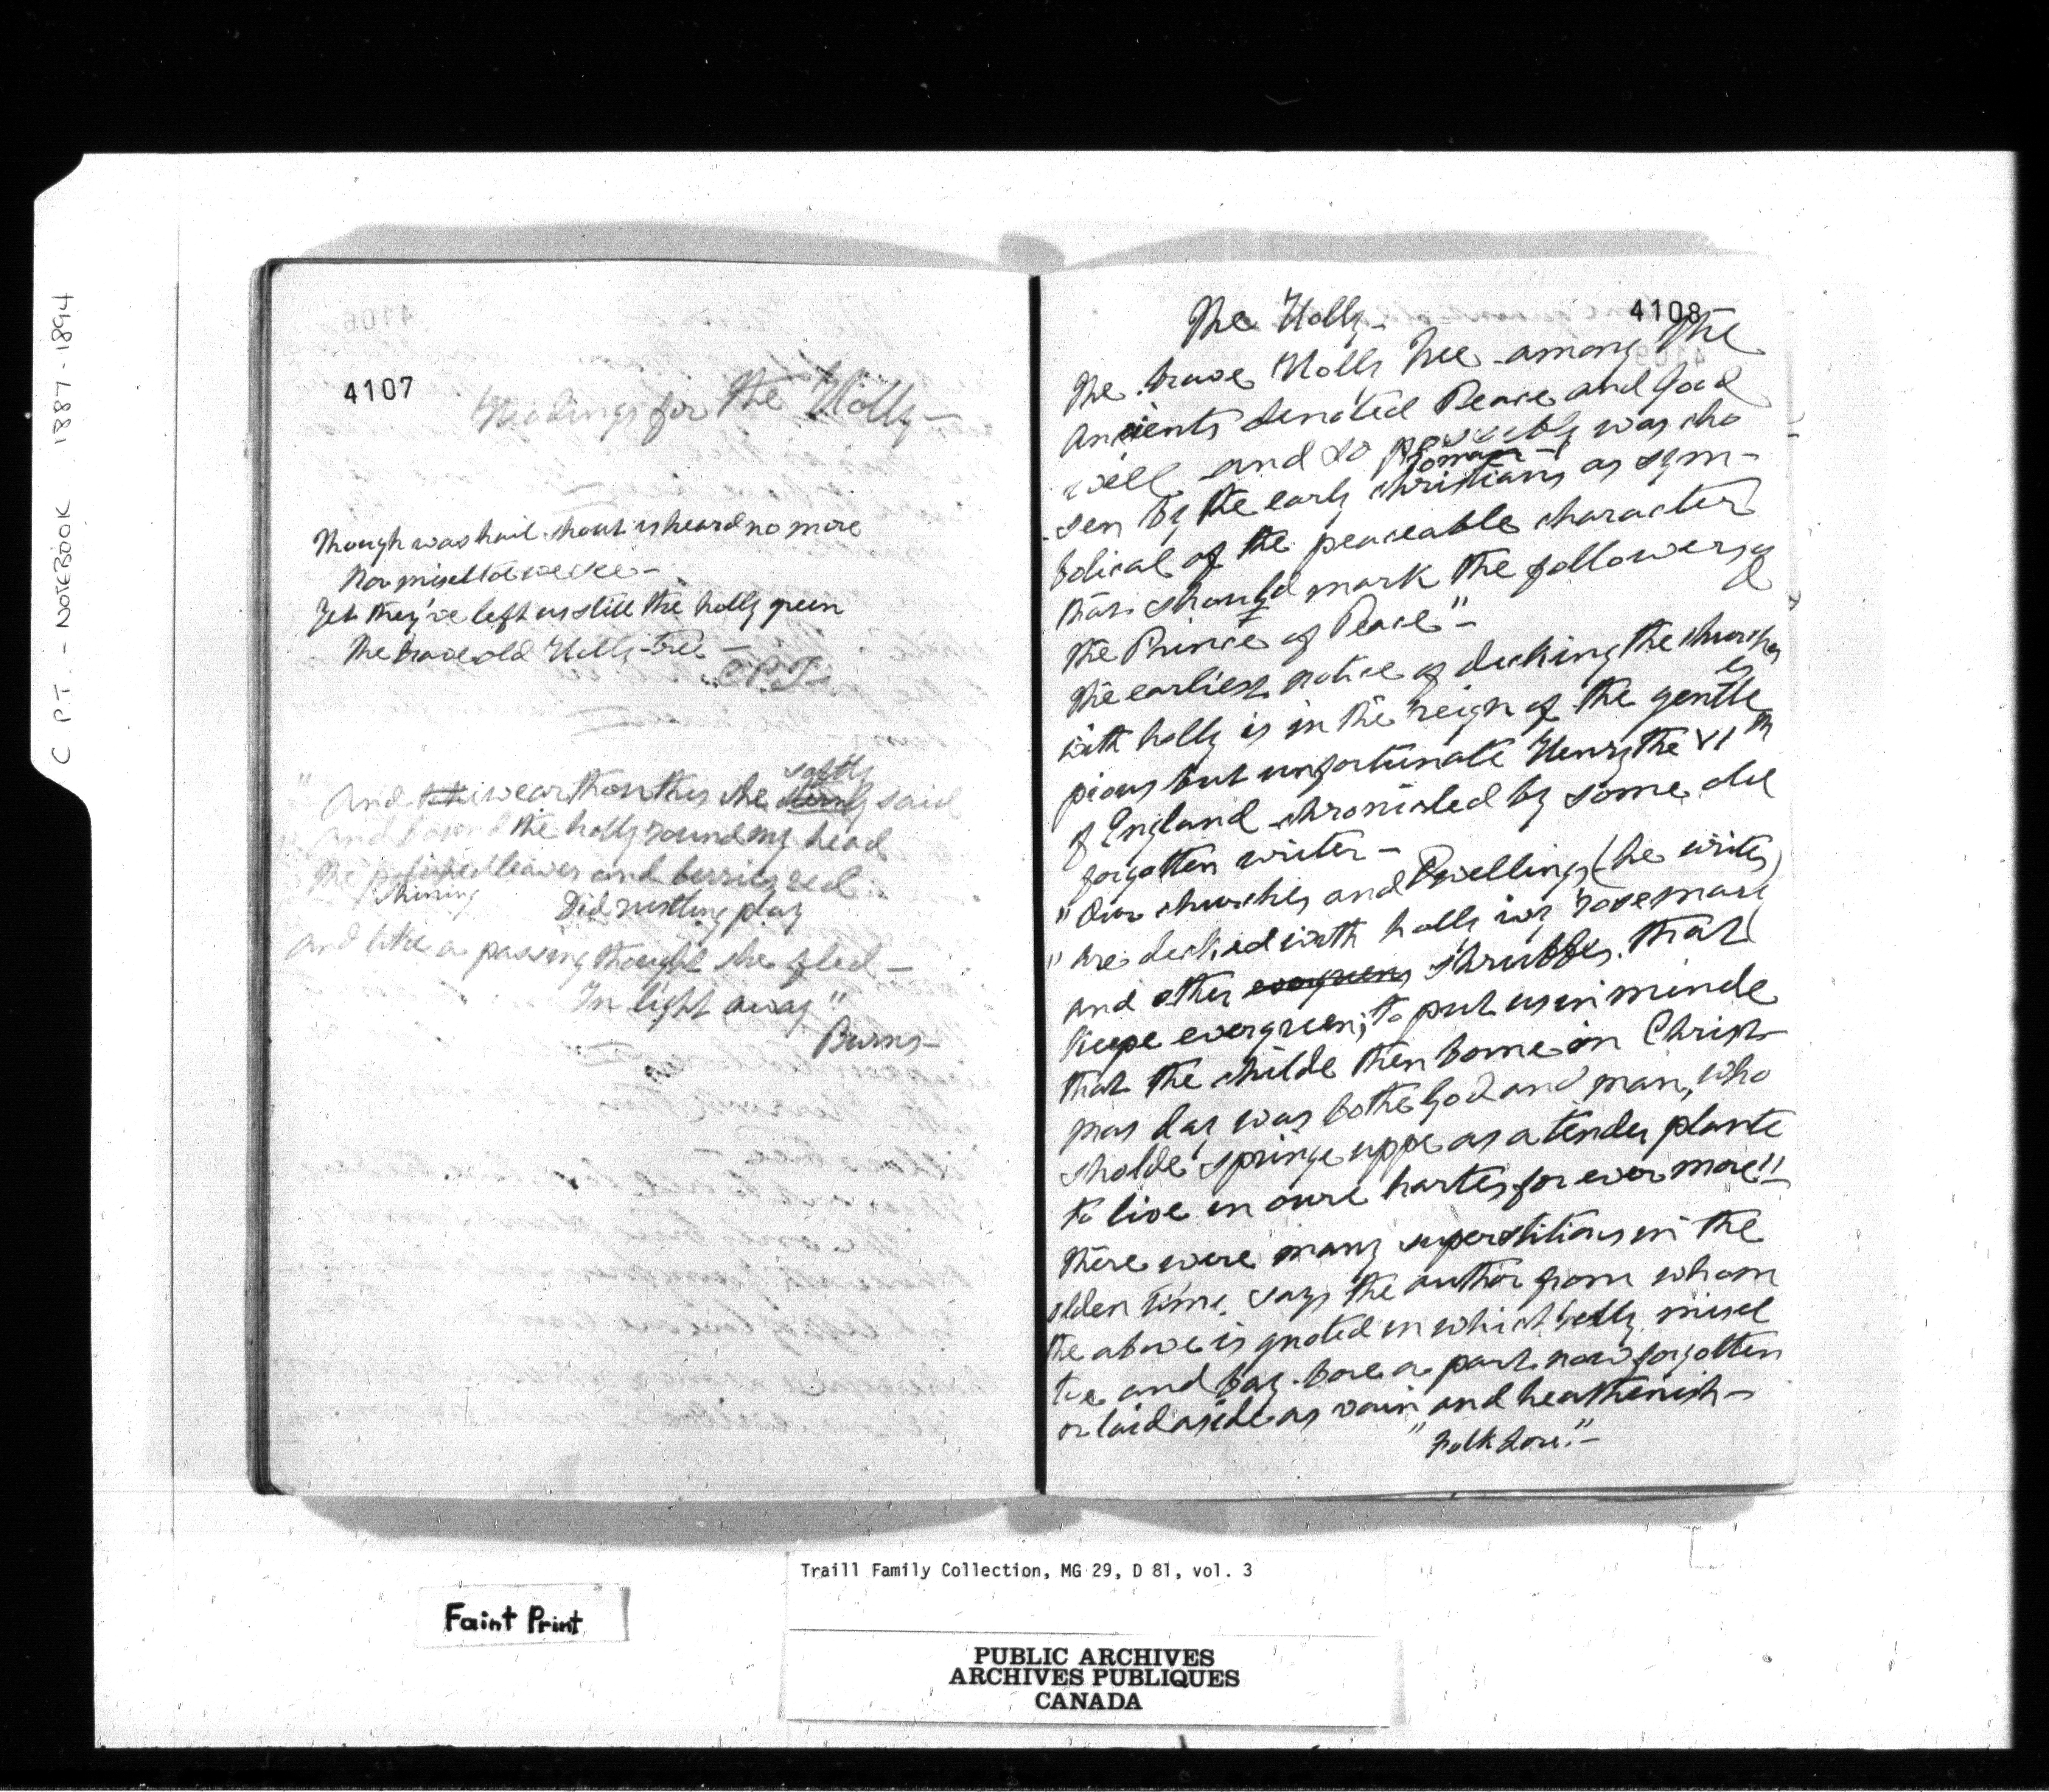 C P.T. - NOTEBOOK 1887-1894
4107
Headings for The Holly-
Though washail shout is heard no more
Nor miseltoe we see-
Yet they've left us still the holly green
The brave old Holly-tree-
"C.P.T-
"And wear thou this she softly said
And bound the holly round my head
The polished leaves and berries red
Shining
Did rustling play
And like a passing thought she fled-
In light away"
Burns-
4108
The Holly-
The brave Holly tree among the
Ancients denoted Peace and Good
will and so possibly was cho
Roman
sen by the early christians as sym-
bolical of the peaceable character
that should mark the followers of
the Prince of Peace"-
The earliest notice of decking the church
es
with holly is in the reign of the gentle
pious but unfortunate Henry the VIth
of England chronicled by some old
forgotten writer-
"Our churches and Dwellings (he writes)
"are decked with holly ivy rosemary
and other evergreens shrubbes that
keepe evergreen; to put us in minde
that the childe then borne on Christ
mas day was bothe God and man, who
sholde springe uppe as a tender plante
to live in oure hartes for ever more!!
There were many superstitions in the
olden time, says the author from whom
the above is quoted in which holly misel
toe and bay bore a part now forgotten
or laid aside as vain and heathenish-
"Folk Lore."-
Traill Family Collection, MG 29, D 81, vol. 3
Faint Print
PUBLIC ARCHIVES
ARCHIVES PUBLIQUES
CANADA